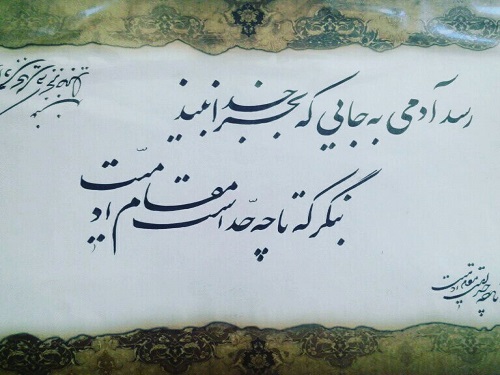 رسد آدمی به جایی که بجز خدا نبیند
بنگر که تا چه حدّ است مقام آدمیّت